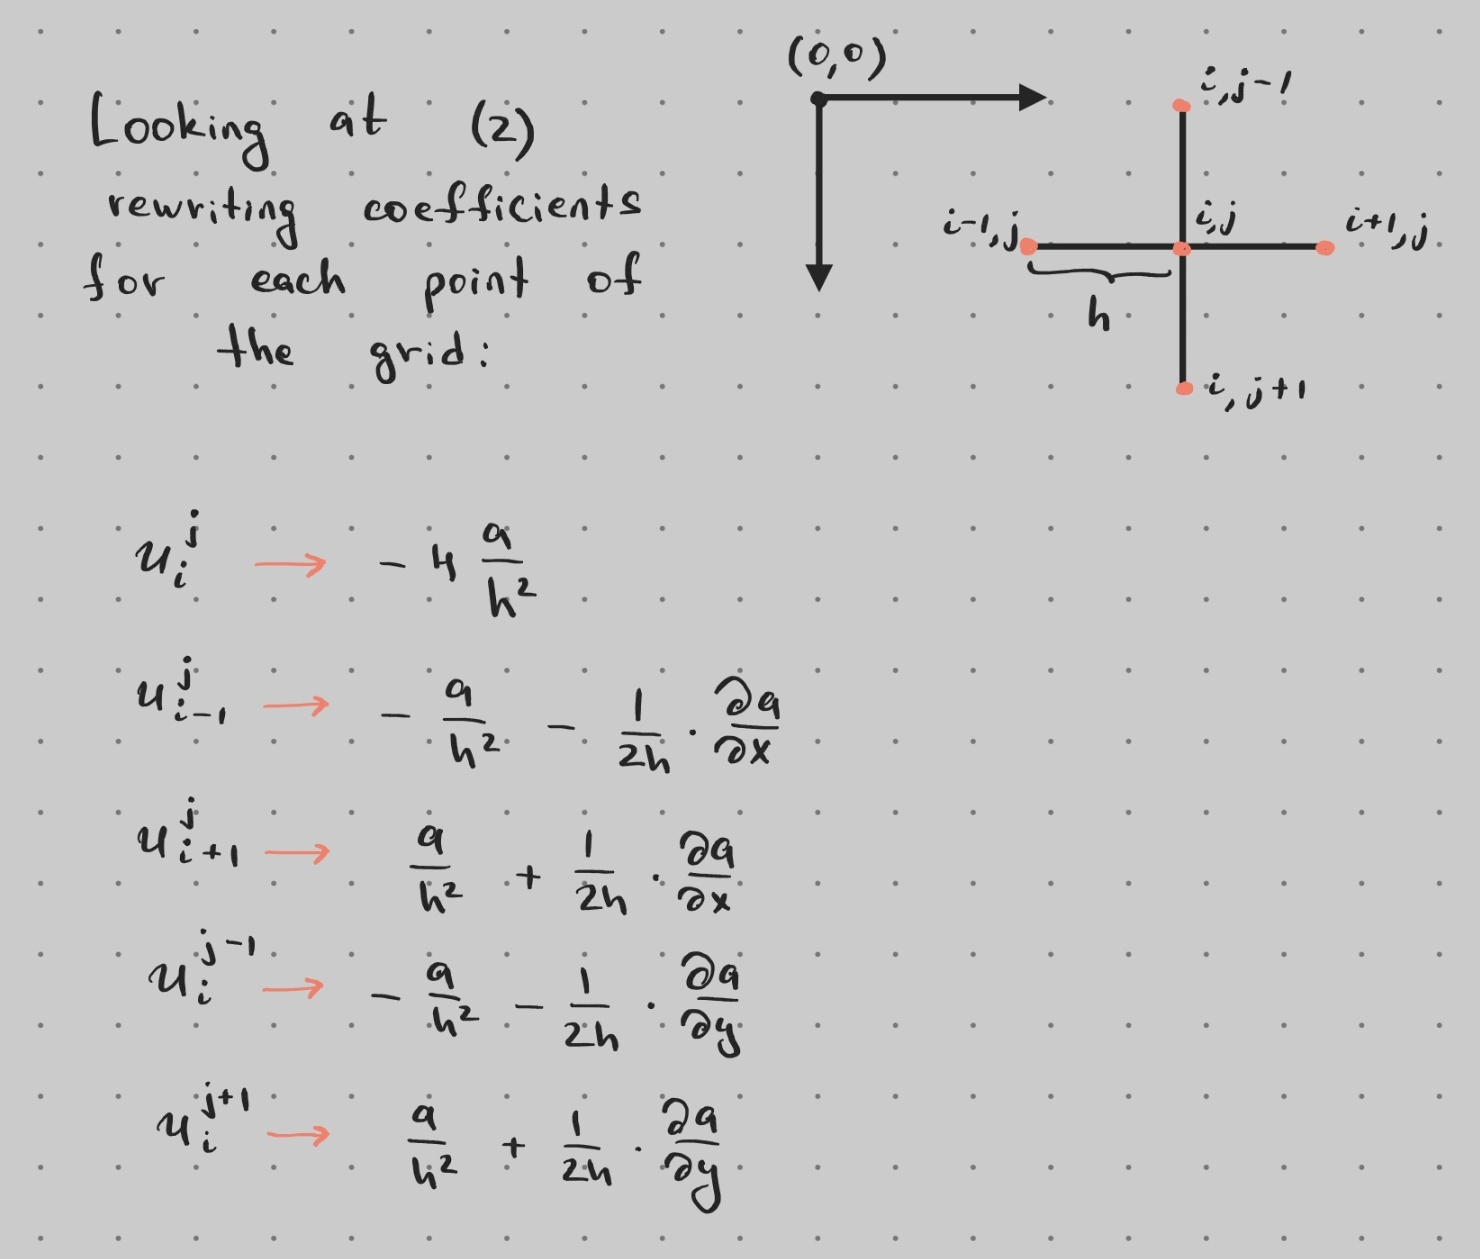 Looking at (2)
rewriting coefficients
for each point of
the grid:
(0,0)
i,j-1
i-1,j
i,j
i+1,j
h
i,j+1
u_i^j → - 4 a/h²
u_{i-1}^j → - a/h² - 1/2h · ∂a/∂x
u_{i+1}^j → a/h² + 1/2h · ∂a/∂x
u_i^{j-1} → - a/h² - 1/2h · ∂a/∂y
u_i^{j+1} → a/h² + 1/2h · ∂a/∂y